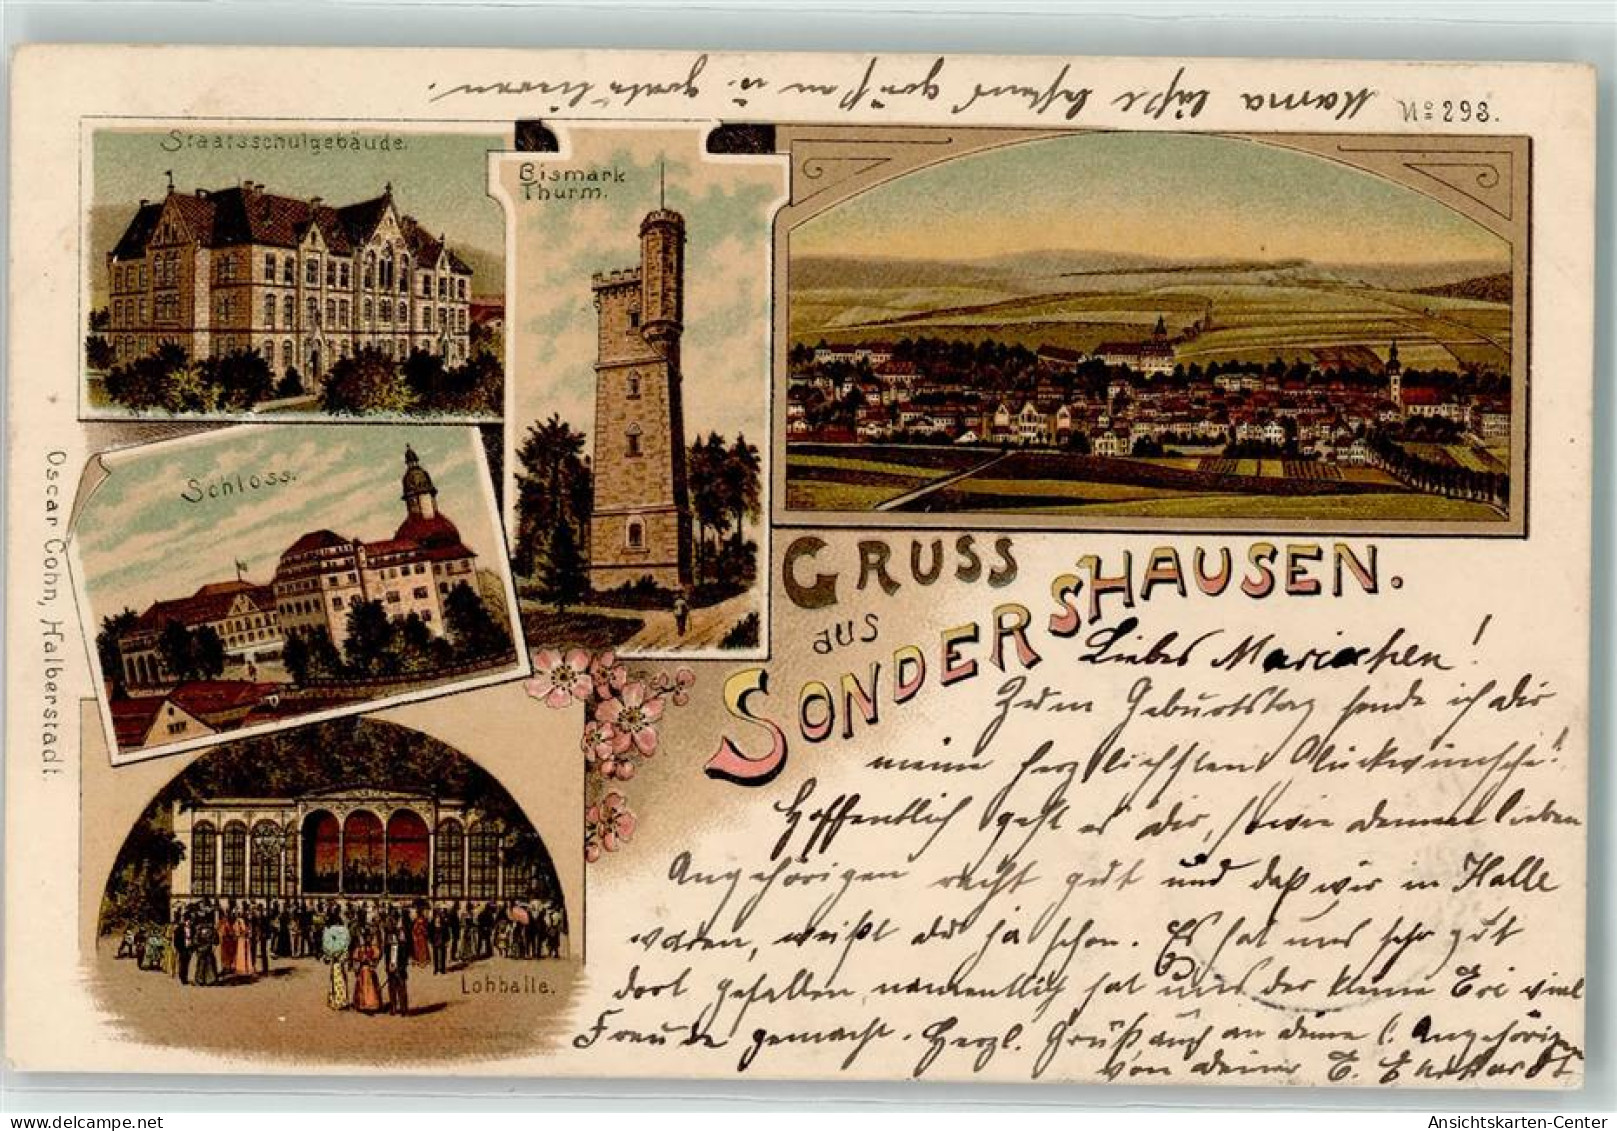 Mama läßt bestens grüßen u. gratulieren.
No 293.
Staatsschulgebäude.
Bismark
Thurm.
Schloss.
Lohhalle.
Oscar Cohn, Halberstadt.
GRUSS
aus
SONDERSHAUSEN.
Liebes Mariechen!
Zum Geburtstag sende ich dir
meine herzlichsten Glückwünsche!
Hoffentlich geht es dir, sowie deinen lieben
Angehörigen recht gut und daß wir in Halle
waren, weißt du ja schon. Es hat uns sehr gut
dort gefallen, namentlich hat uns der kleine Eri viel
Freude gemacht. Herzl. Grüße auch an deine l. Angehörigen
von deiner E. Eckardt
Ansichtskarten-Center